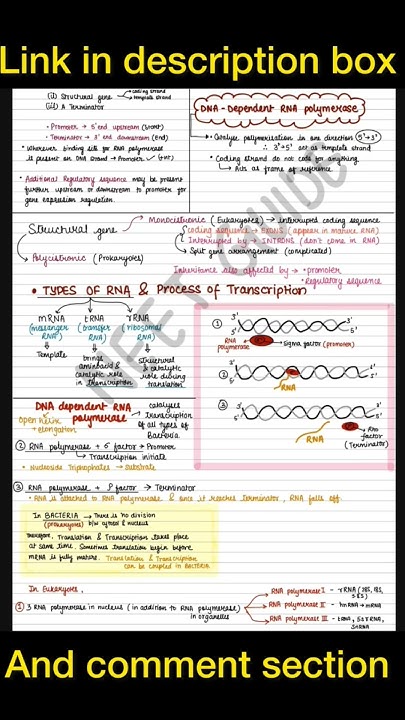 Link in description box
coding strand
(ii) Structural gene
template strand
(iii) A Terminator
• Promoter → 5' end upstream (start)
• Terminator → 3' end downstream (End)
• Wherever binding site for RNA polymerase
is present on DNA strand → Promoter
• Additional Regulatory sequence may be present
further upstream or downstream to promoter for
gene expression regulation.
DNA - Dependent RNA polymerase
• Catalyse polymerisation in one direction (5'→3')
∴ 3'→5' act as template strand
• Coding strand do not code for anything.
↳ Acts as frame of reference.
Structural gene
Monocistronic (Eukaryotes) → interrupted coding sequence
coding sequence → EXONS (appear in mature RNA)
Interrupted by → INTRONS (don't come in RNA)
↳ Split gene arrangement (complicated)
Polycistronic (Prokaryotes)
Inheritance also affected by → • promoter
• regulatory sequence
• TYPES OF RNA & Process of Transcription
mRNA tRNA rRNA
(messenger RNA) (transfer RNA) (ribosomal RNA)
Template
brings aminoacid & catalytic role in transcription
structural & catalytic role during translation
DNA dependent RNA polymerase
catalyses Transcription of all types of Bacteria
open helix → elongation
② RNA polymerase + σ factor → Promoter
↳ Transcription initiate
• Nucleoside Triphosphates → Substrate
① 3' 5'
RNA polymerase
sigma factor (promoter)
② 3' 5'
RNA
③ 3' 5'
RNA
Rho factor (Terminator)
③ RNA polymerase + ρ factor → Terminator
• RNA is attached to RNA polymerase & once it reaches terminator, RNA falls off.
In BACTERIA → There is no division
(prokaryotes) b/w cytosol & nucleus
therefore, Translation & Transcription takes place
at same time. Sometimes translation begin before
mRNA is fully mature. Translation & Transcription
can be coupled in BACTERIA.
In Eukaryotes,
① 3 RNA polymerase in nucleus (in addition to RNA polymerase)
in organelles
RNA polymerase I - rRNA (28S, 18S, 5.8S)
RNA polymerase II - hnRNA → mRNA
RNA polymerase III - tRNA, 5srRNA, SnRNA
NEET GUIDE
And comment section